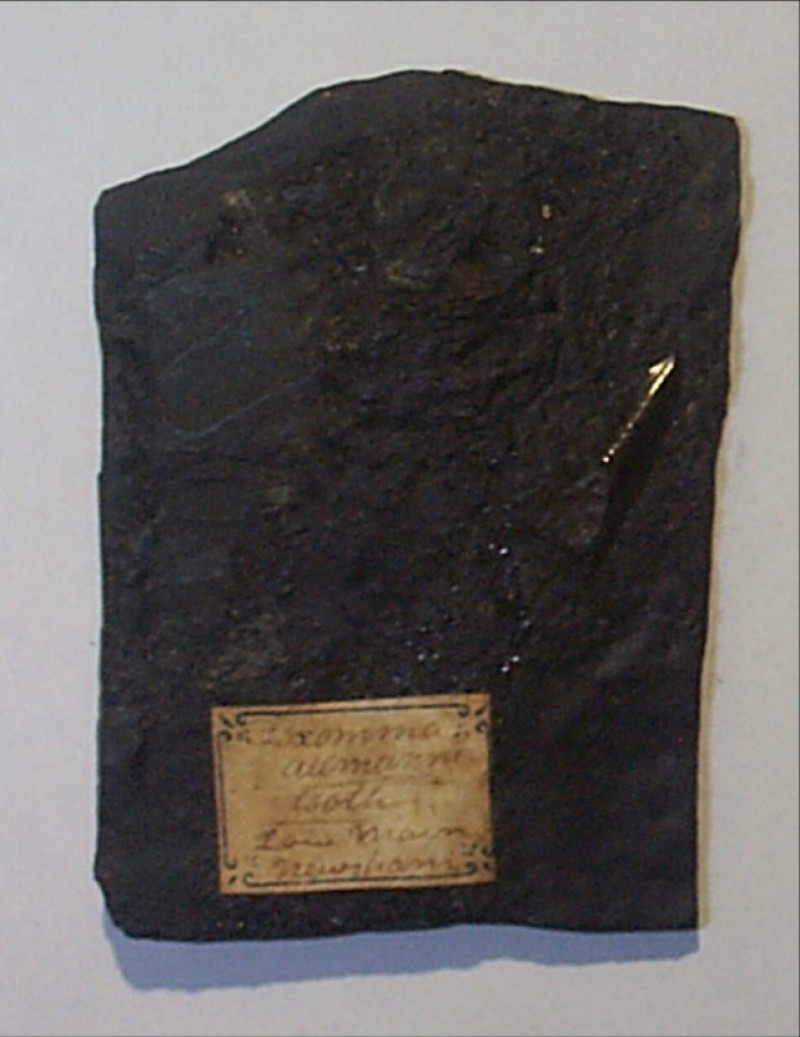 Loxomma
allmanni
tooth
Low Main
Newsham